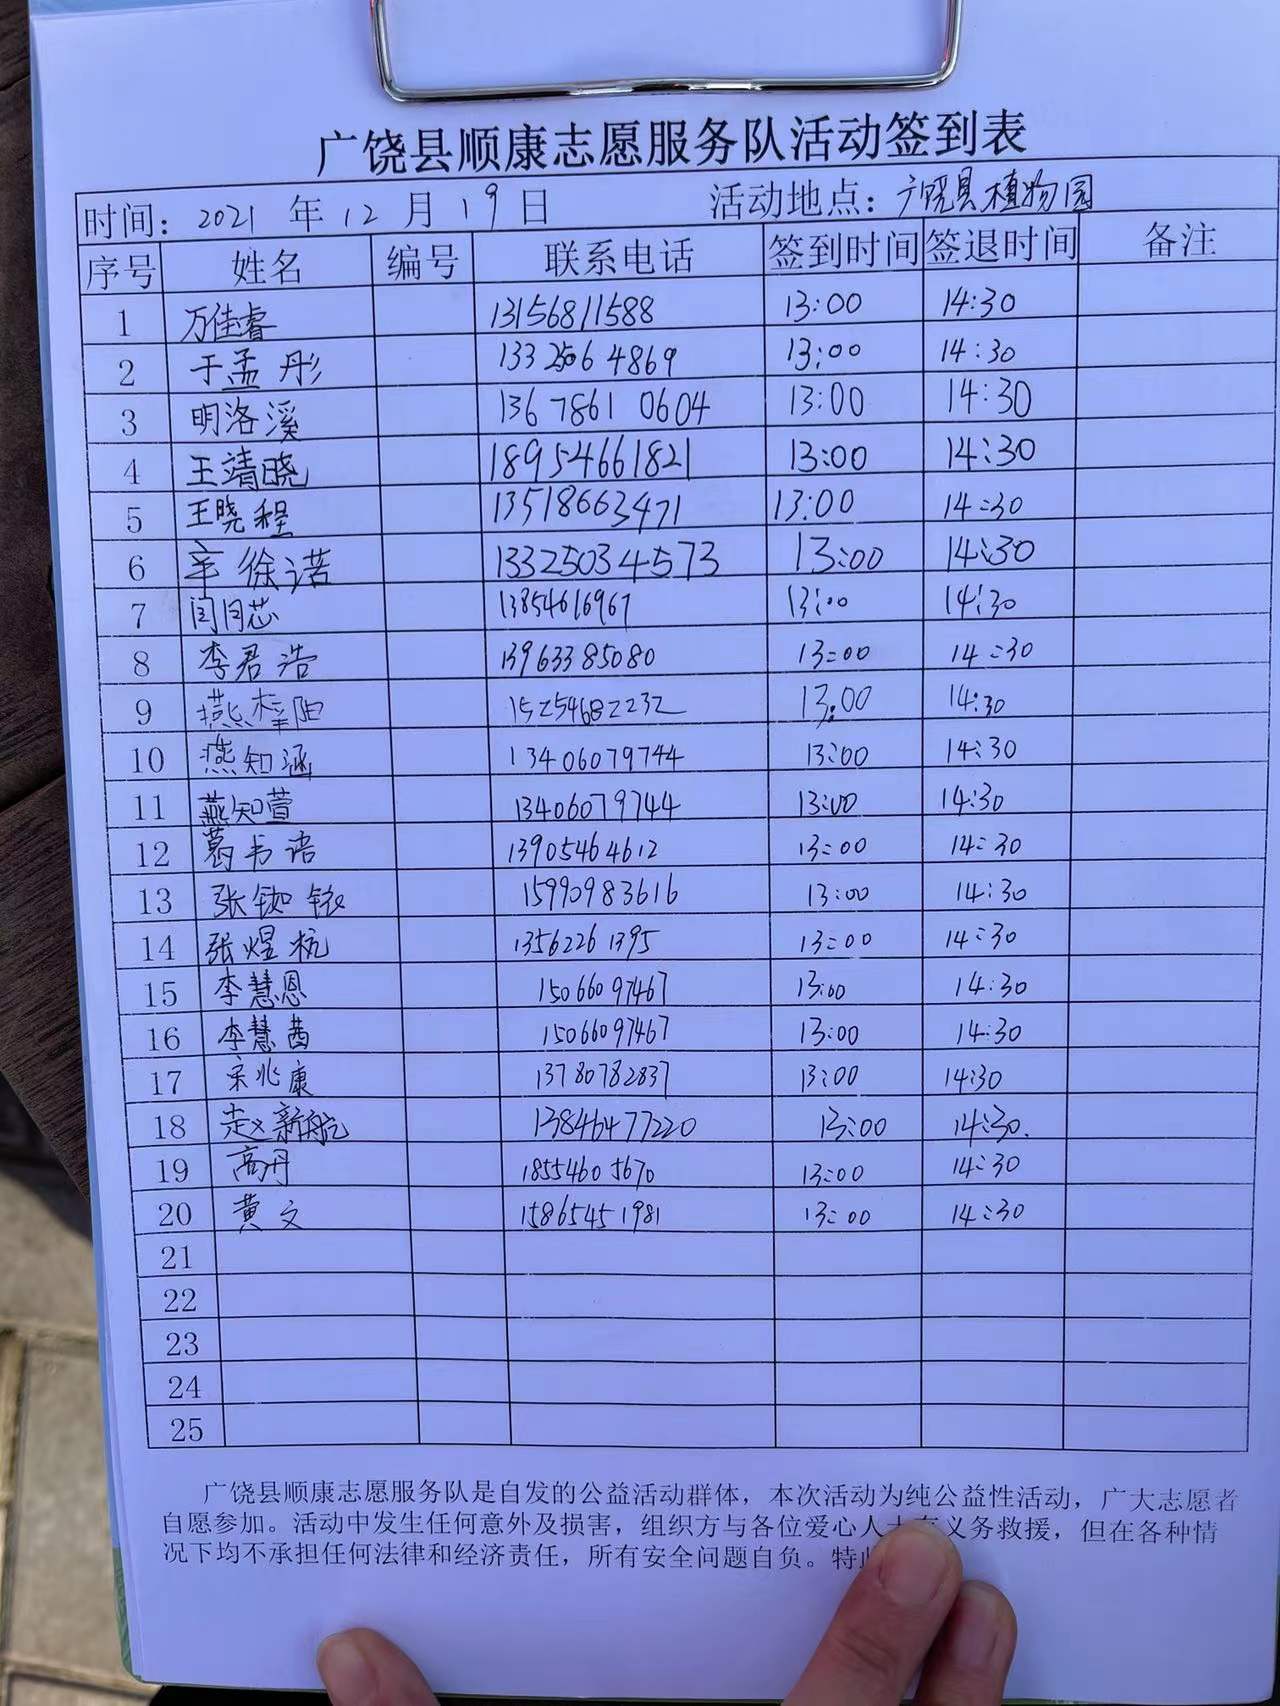 广饶县顺康志愿服务队活动签到表
时间: 2021 年 12 月 19 日 活动地点: 广饶县植物园
序号 姓名 编号 联系电话 签到时间 签退时间 备注
1 万佳睿 13156811588 13:00 14:30
2 于孟彤 13325064869 13:00 14:30
3 明洛溪 13678610604 13:00 14:30
4 王靖晓 18954661821 13:00 14:30
5 王晓程 13518663471 13:00 14:30
6 辛徐诺 13325034573 13:00 14:30
7 闫月芯 13854616967 13:00 14:30
8 李君浩 13963385080 13:00 14:30
9 燕梓阳 15254682232 13:00 14:30
10 燕知涵 13406079744 13:00 14:30
11 燕知萱 13406079744 13:00 14:30
12 葛书语 13905464612 13:00 14:30
13 张铷铱 15990983616 13:00 14:30
14 张煜杭 13562261395 13:00 14:30
15 李慧恩 15066097467 13:00 14:30
16 李慧茜 15066097467 13:00 14:30
17 宋兆康 13780782837 13:00 14:30
18 赵新航 13846477220 13:00 14:30.
19 高丹 18554605670 13:00 14:30
20 黄文 15865451981 13:00 14:30
21
22
23
24
25
广饶县顺康志愿服务队是自发的公益活动群体，本次活动为纯公益性活动，广大志愿者
自愿参加。活动中发生任何意外及损害，组织方与各位爱心人士有义务救援，但在各种情
况下均不承担任何法律和经济责任，所有安全问题自负。特此